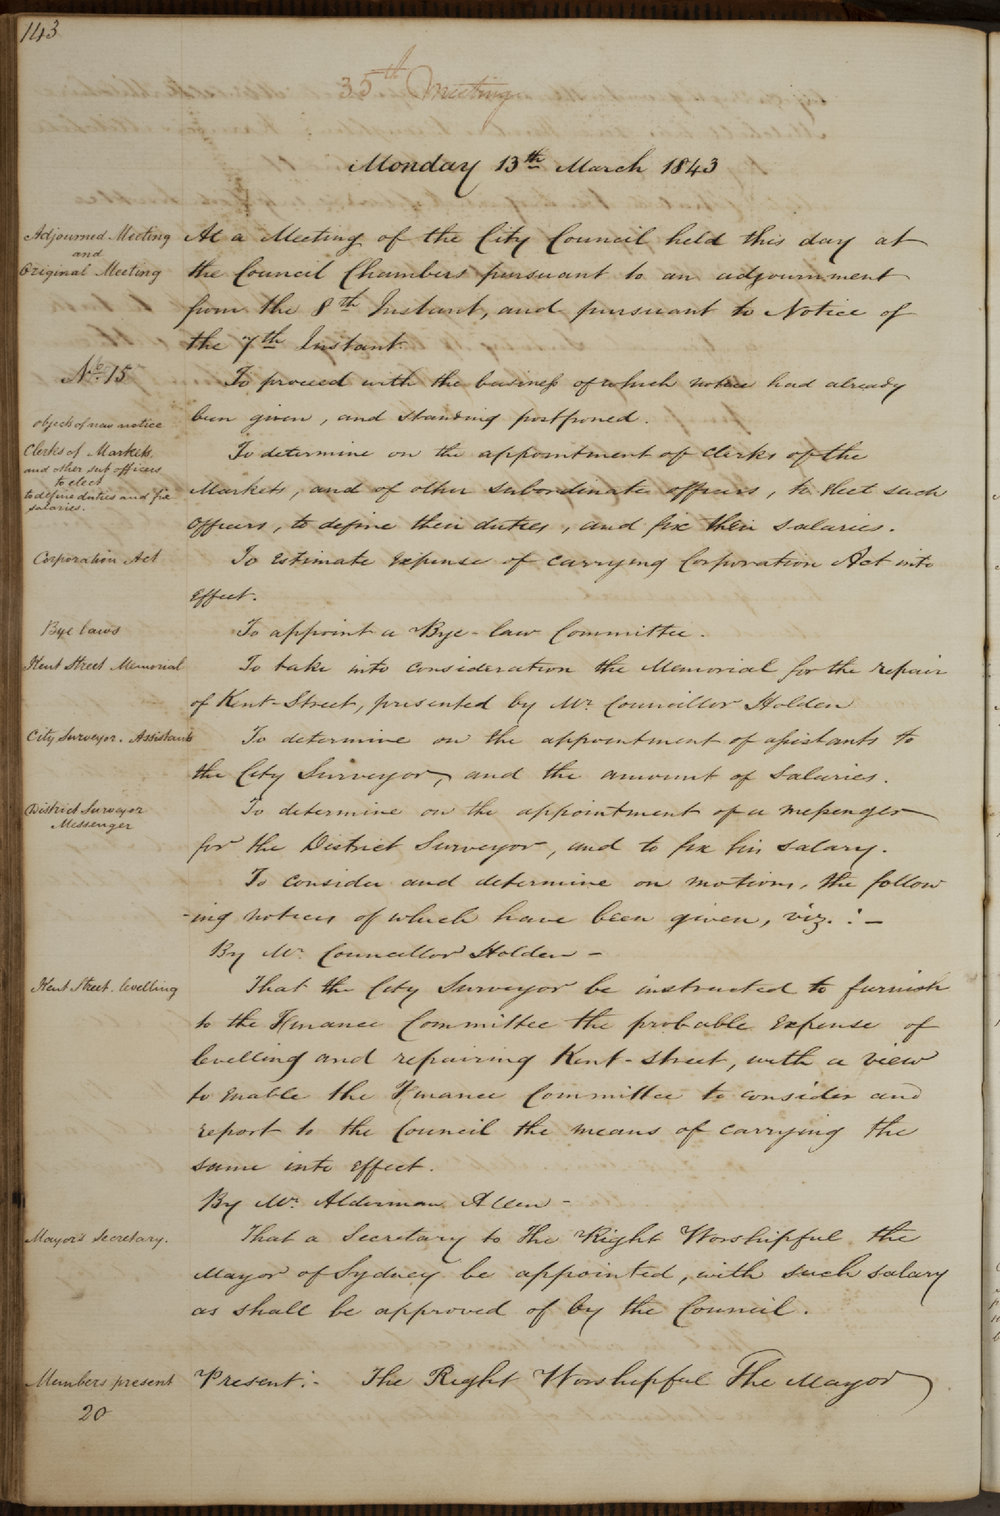 143
35th Meeting
Monday 13th March 1843
Adjourned Meeting
and
Original Meeting
At a Meeting of the City Council held this day at
the Council Chambers pursuant to an adjournment
from the 8th Instant, and pursuant to Notice of
the 7th Instant.
No. 15
To proceed with the business of which notice had already
been given, and standing postponed.
objects of new notice
Clerks of Markets,
and other sub officers
to elect
to define duties and fix
salaries.
To determine on the appointment of Clerks of the
Markets, and of other subordinate officers, to elect such
officers, to define their duties, and fix their salaries.
Corporation Act
To Estimate Expense of carrying Corporation Act into
Effect.
Bye laws
To appoint a Bye-law Committee.
Kent Street Memorial
To take into consideration the Memorial for the repair
of Kent-Street, presented by Mr. Councillor Holden
City Surveyor. Assistants
To determine on the appointment of assistants to
the City Surveyor, and the amount of Salaries.
District Surveyor
Messenger
To determine on the appointment of a messenger
for the District Surveyor, and to fix his salary.
To consider and determine on motions, the follow
-ing notices of which have been given, viz. :-
By Mr. Councillor Holden -
Kent Street. levelling
That the City Surveyor be instructed to furnish
to the Finance Committee the probable Expense of
levelling and repairing Kent-street, with a view
to Enable the Finance Committee to consider and
report to the Council the means of carrying the
same into Effect.
By Mr. Alderman Allen -
Mayor's Secretary.
That a Secretary to The Right Worshipful the
Mayor of Sydney be appointed, with such salary
as shall be approved of by the Council.
Members present
20
Present :- The Right Worshipful The Mayor